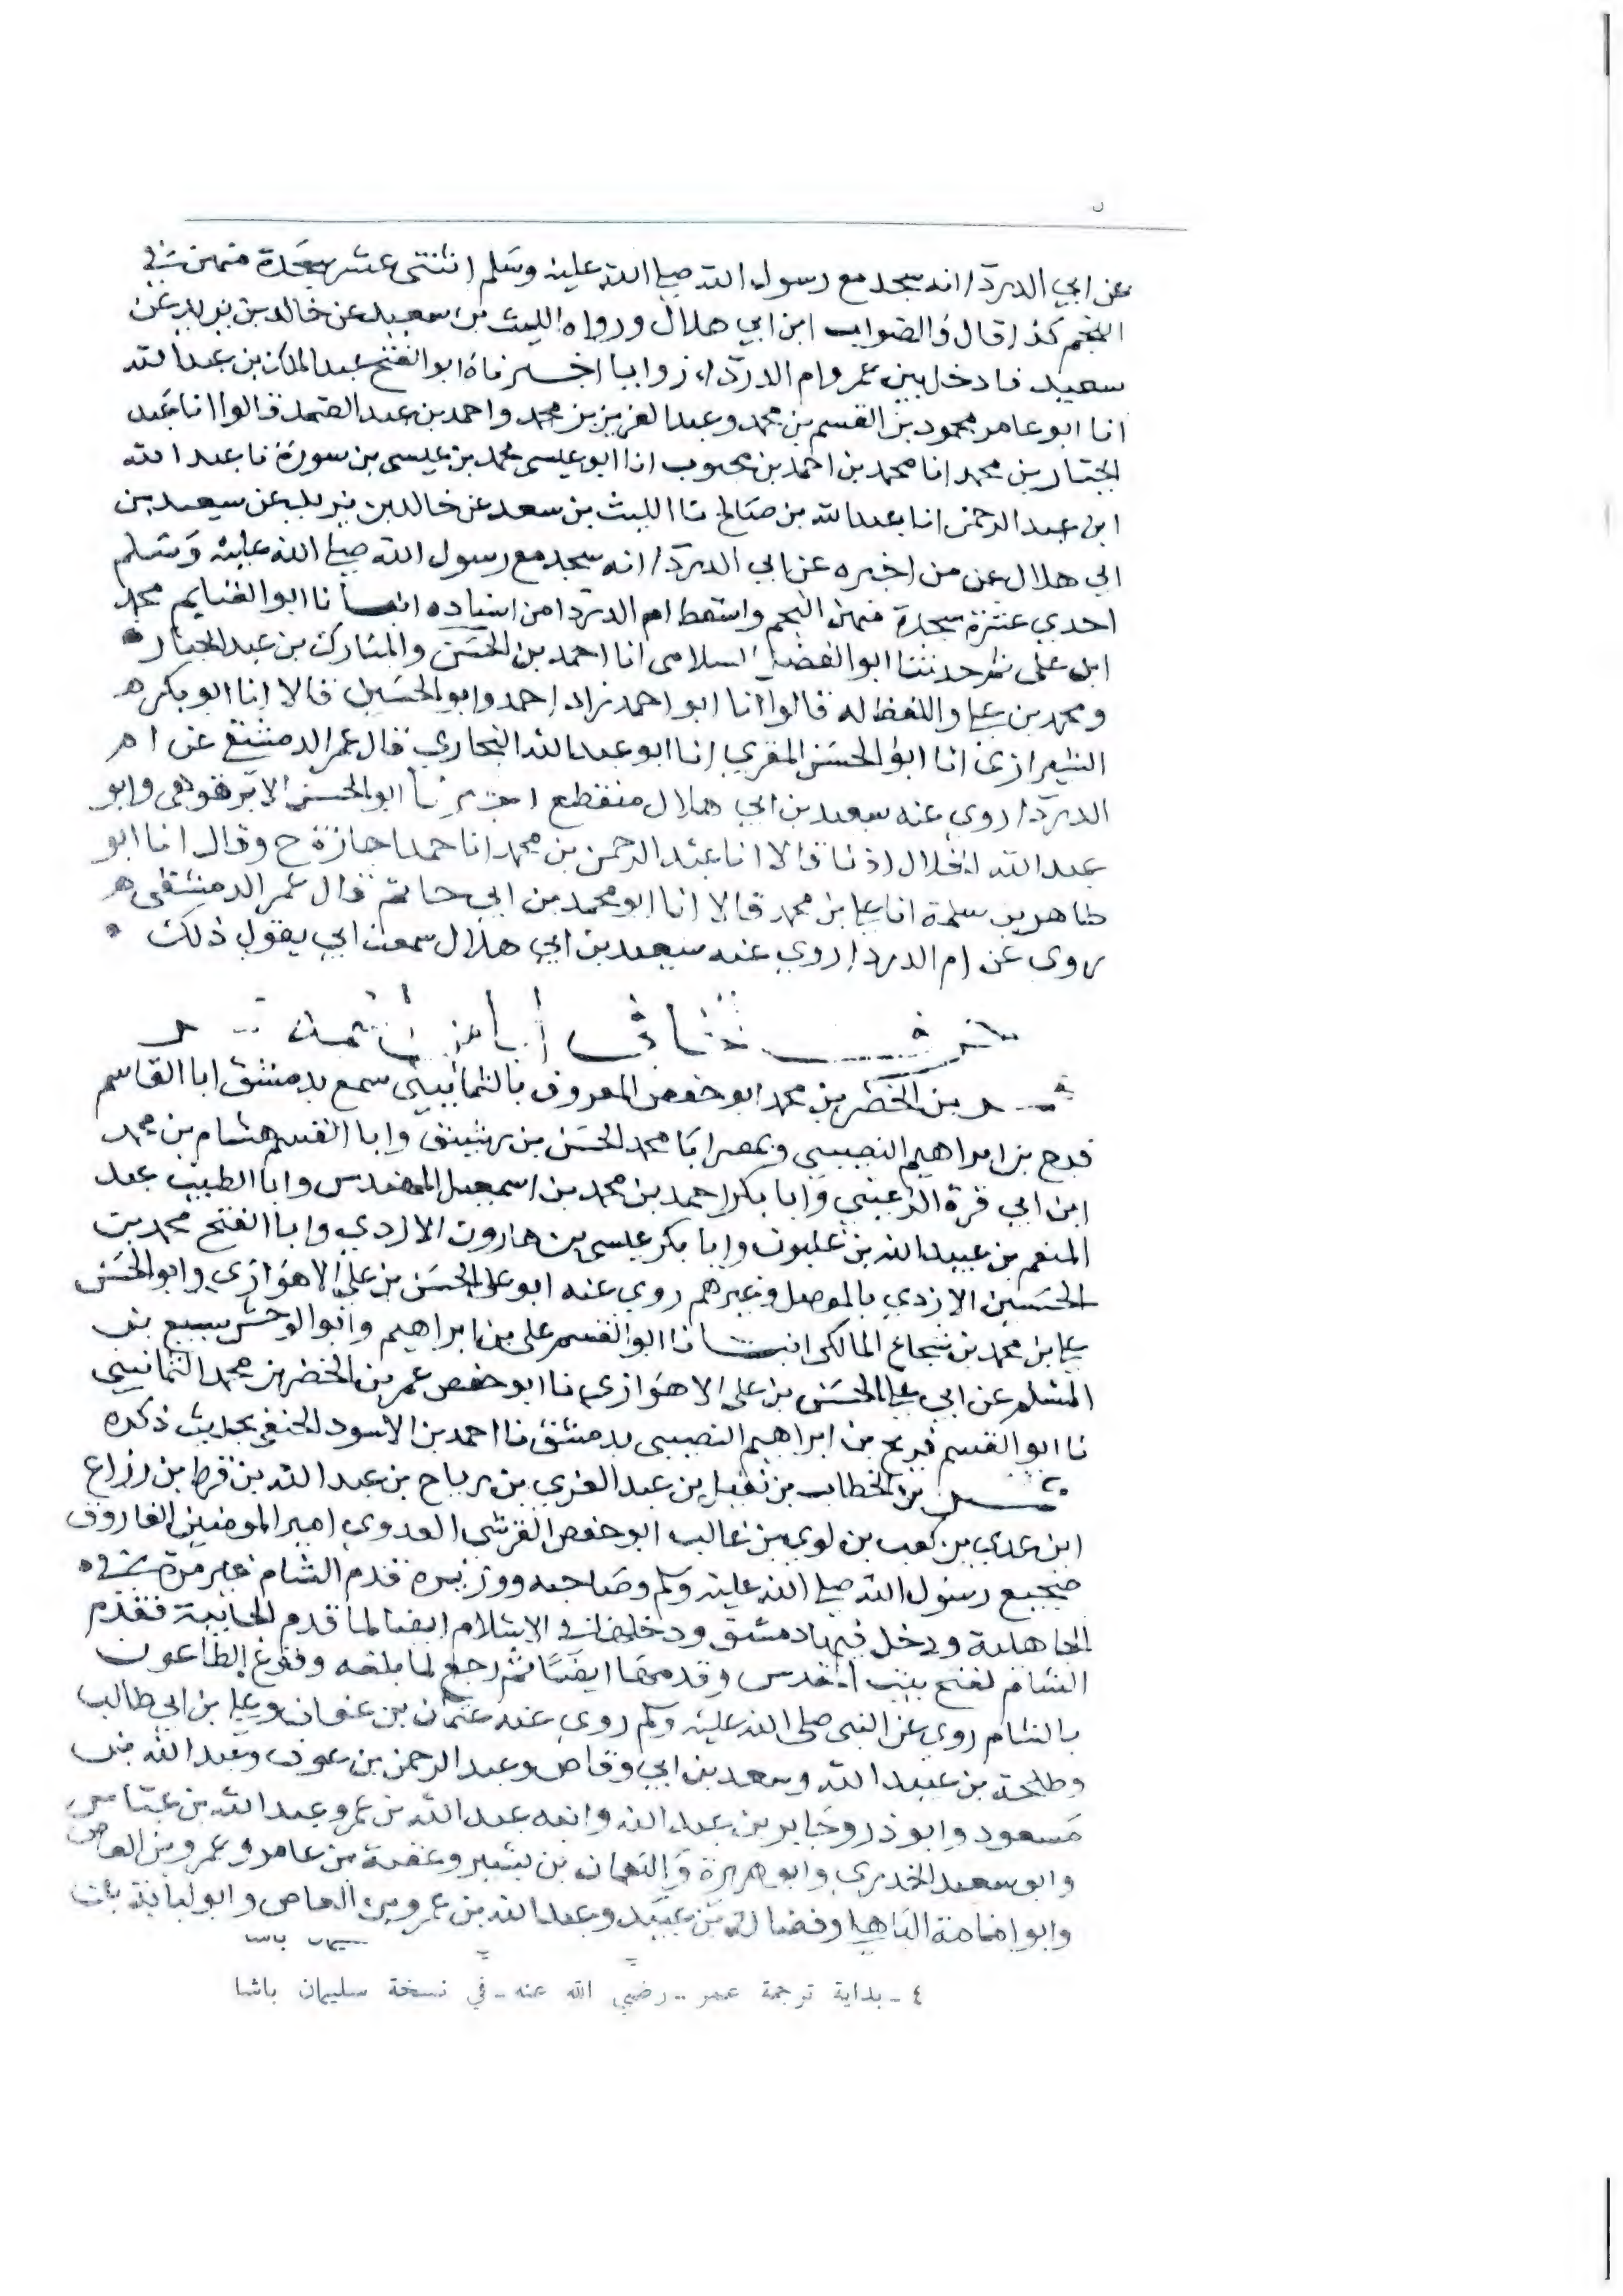 عن ابي الدردا انه سجد مع رسول الله صلى الله عليه وسلم اثنتي عشر سجدة منهن في
النجم كذا قال والصواب ابن ابي هلال ورواه الليث بن سعيد عن خالد بن يزيد عن
سعيد فادخل بين عمر وام الدردا، اخبرناه ابو الفتح عبد الملك بن عبد الله
انا ابو عامر محمود بن القسم بن محمد وعبد العزيز بن محمد واحمد بن عبد الصمد قالوا انا عبد
الجبار بن محمد انا محمد بن احمد بن محبوب انا ابو عيسى محمد بن عيسى بن سورة نا عبد الله
ابن عبد الرحمن انا عبد الله بن صالح نا الليث بن سعد عن خالد بن يزيد عن سعيد بن
ابي هلال عن من اخبره عن ابي الدردا انه سجد مع رسول الله صلى الله عليه وسلم
احدى عشرة سجدة منهن النجم واسقط ام الدردا من اسناده انبانا ابو الغنايم محمد
ابن علي ثم حدثنا ابو الفضل السلامي انا احمد بن الحسن والمبارك بن عبد الجبار
ومحمد بن علي واللفظ له قالوا انا ابو احمد زاد احمد وابو الحسين قالا انا ابو بكر
الشيرازي انا ابو الحسن المقري انا ابو عبد الله البخاري قال عمر الدمشقي عن ام
الدردا روى عنه سعيد بن ابي هلال منقطع اخبرنا ابو الحسن الابرقوهي وابو
عبد الله الخلال اذنا قالا انا عبد الرحمن بن محمد انا حمد اجازة ح وقال انا ابو
طاهر بن سلمة انا علي بن محمد قالا انا ابو محمد بن ابي حاتم قال عمر الدمشقي
روى عن ام الدردا روى عنه سعيد بن ابي هلال سمعت ابي يقول ذلك
بن الخضر بن محمد ابو حفص المعروف بالثمانيني سمع بدمشق ابا القاسم
فرج بن ابراهيم النصيبي وبمصر ابا محمد الحسن بن رشيق وابا القسم هشام بن محمد
ابن ابي قرة الرعيني وابا بكر احمد بن محمد بن اسمعيل المهندس وابا الطيب عبد
المنعم بن عبيد الله بن غلبون وابا بكر عيسى بن هارون الازدي وابا الفتح محمد بن
الحسين الازدي بالموصل وغيرهم روى عنه ابو علي الحسن بن علي الاهوازي وابو الحسن
علي بن محمد بن شجاع المالكي انبانا ابو القسم علي بن ابراهيم وابو الوحش سبيع بن
المسلم عن ابي علي الحسن بن علي الاهوازي نا ابو حفص عمر بن الخضر بن محمد الثمانيني
نا ابو القسم فرج بن ابراهيم النصيبي بدمشق نا احمد بن الاسود الحنفي بحديث ذكره
عمر بن الخطاب بن نفيل بن عبد العزي بن رياح بن عبد الله بن قرط بن رزاع
ابن عدي بن كعب بن لوي بن غالب ابو حفص القرشي العدوي امير المومنين الفاروق
ضجيع رسول الله صلى الله عليه وسلم وصاحبه ووزيره قدم الشام غير مرة في
الجاهلية ودخل فيها دمشق ودخلها في الاسلام ايضا لما قدم الجابية فقدم
الشام لفتح بيت المقدس وقدمها ايضا ثم رجع لما بلغه وقوع الطاعون
بالشام روى عن النبي صلى الله عليه وسلم روى عنه عثمان بن عفان وعلي بن ابي طالب
وطلحة بن عبيد الله وسعد بن ابي وقاص وعبد الرحمن بن عوف وعبد الله بن
مسعود وابو ذر وجابر بن عبد الله وابنه عبد الله بن عمر وعبد الله بن عباس
وابو سعيد الخدري وابو هريرة والنعمان بن بشير وعقبة بن عامر وعمرو بن العاص
وابو امامة الباهلي وفضالة بن عبيد وعبد الله بن عمرو بن العاص وابو لبابة بن
٤ - بداية ترجمة عمر - رضي الله عنه - في نسخة سليمان باشا